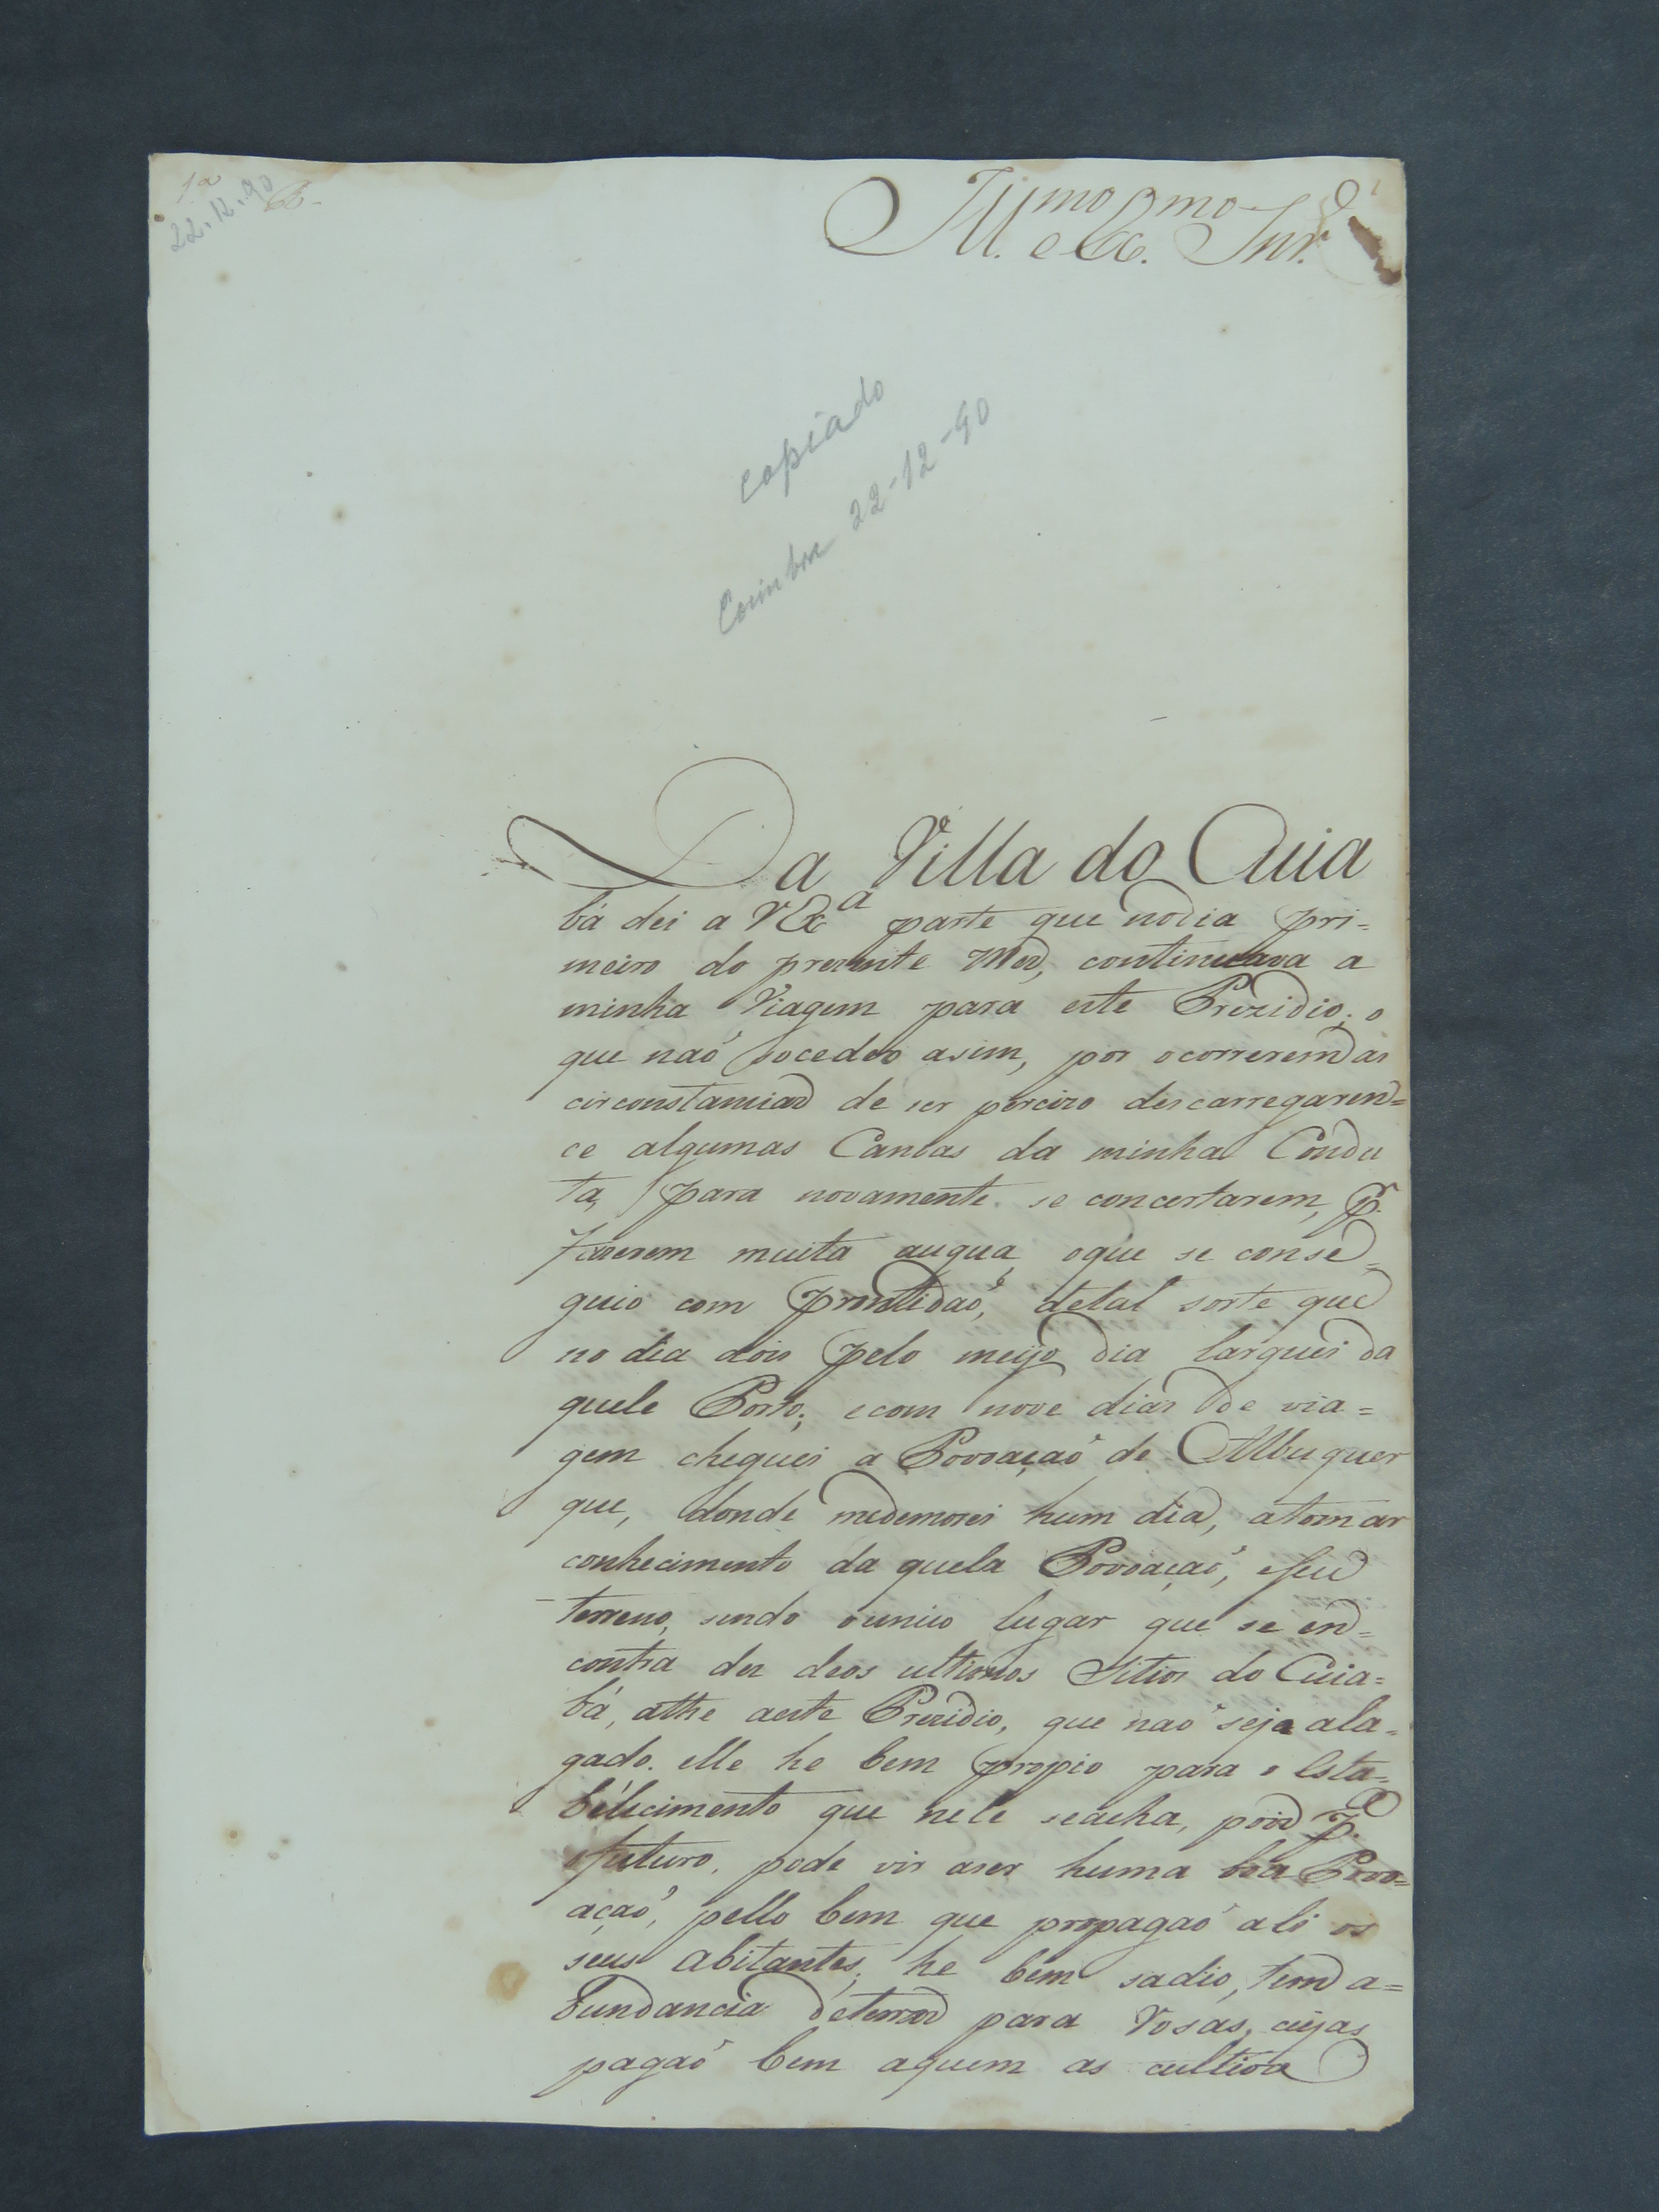 1ª
22.12.90
Ill.mo e Ex.mo Snr.
copiado
Coimbra 22-12-90
Da Villa do Cuia
bá dei a V Exª parte que nodia pri=
meiro do prezente Mes, continuava a
minha Viagem para este Prezidio; o
que naõ socedeo asim, por ocorrerem as
circonstancias de ser percizo descarregaren=
ce algumas Canoas da minha Condu
ta, para novamente se concertarem, p.r
fazerem muita augua, oque se conse=
guio com prontidaõ, detal sorte que
no dia dois pelo meyo dia larguei da
quele Porto; ecom nove dias de via=
gem cheguei a Povoaçaõ de Albuquer
que, donde medemorei hum dia, atomar
conhecimento da quela Povoaçaõ, eseu
terreno, sendo ounico lugar que se en=
contra des deos ultimos Sitios do Cuia=
bá, athe aeste Prezidio, que naõ seja ala=
gado. elle he bem propio para o Esta=
bélicimento que nele seacha, pois p.ª
o futuro, pode vir aser huma boa Povo=
açaõ, pello bem que propagaõ ali os
seus abitantes; he bem sadio, tem a=
bundancia deterras para Rosas, cujas
pagaõ bem aquem as cultiva